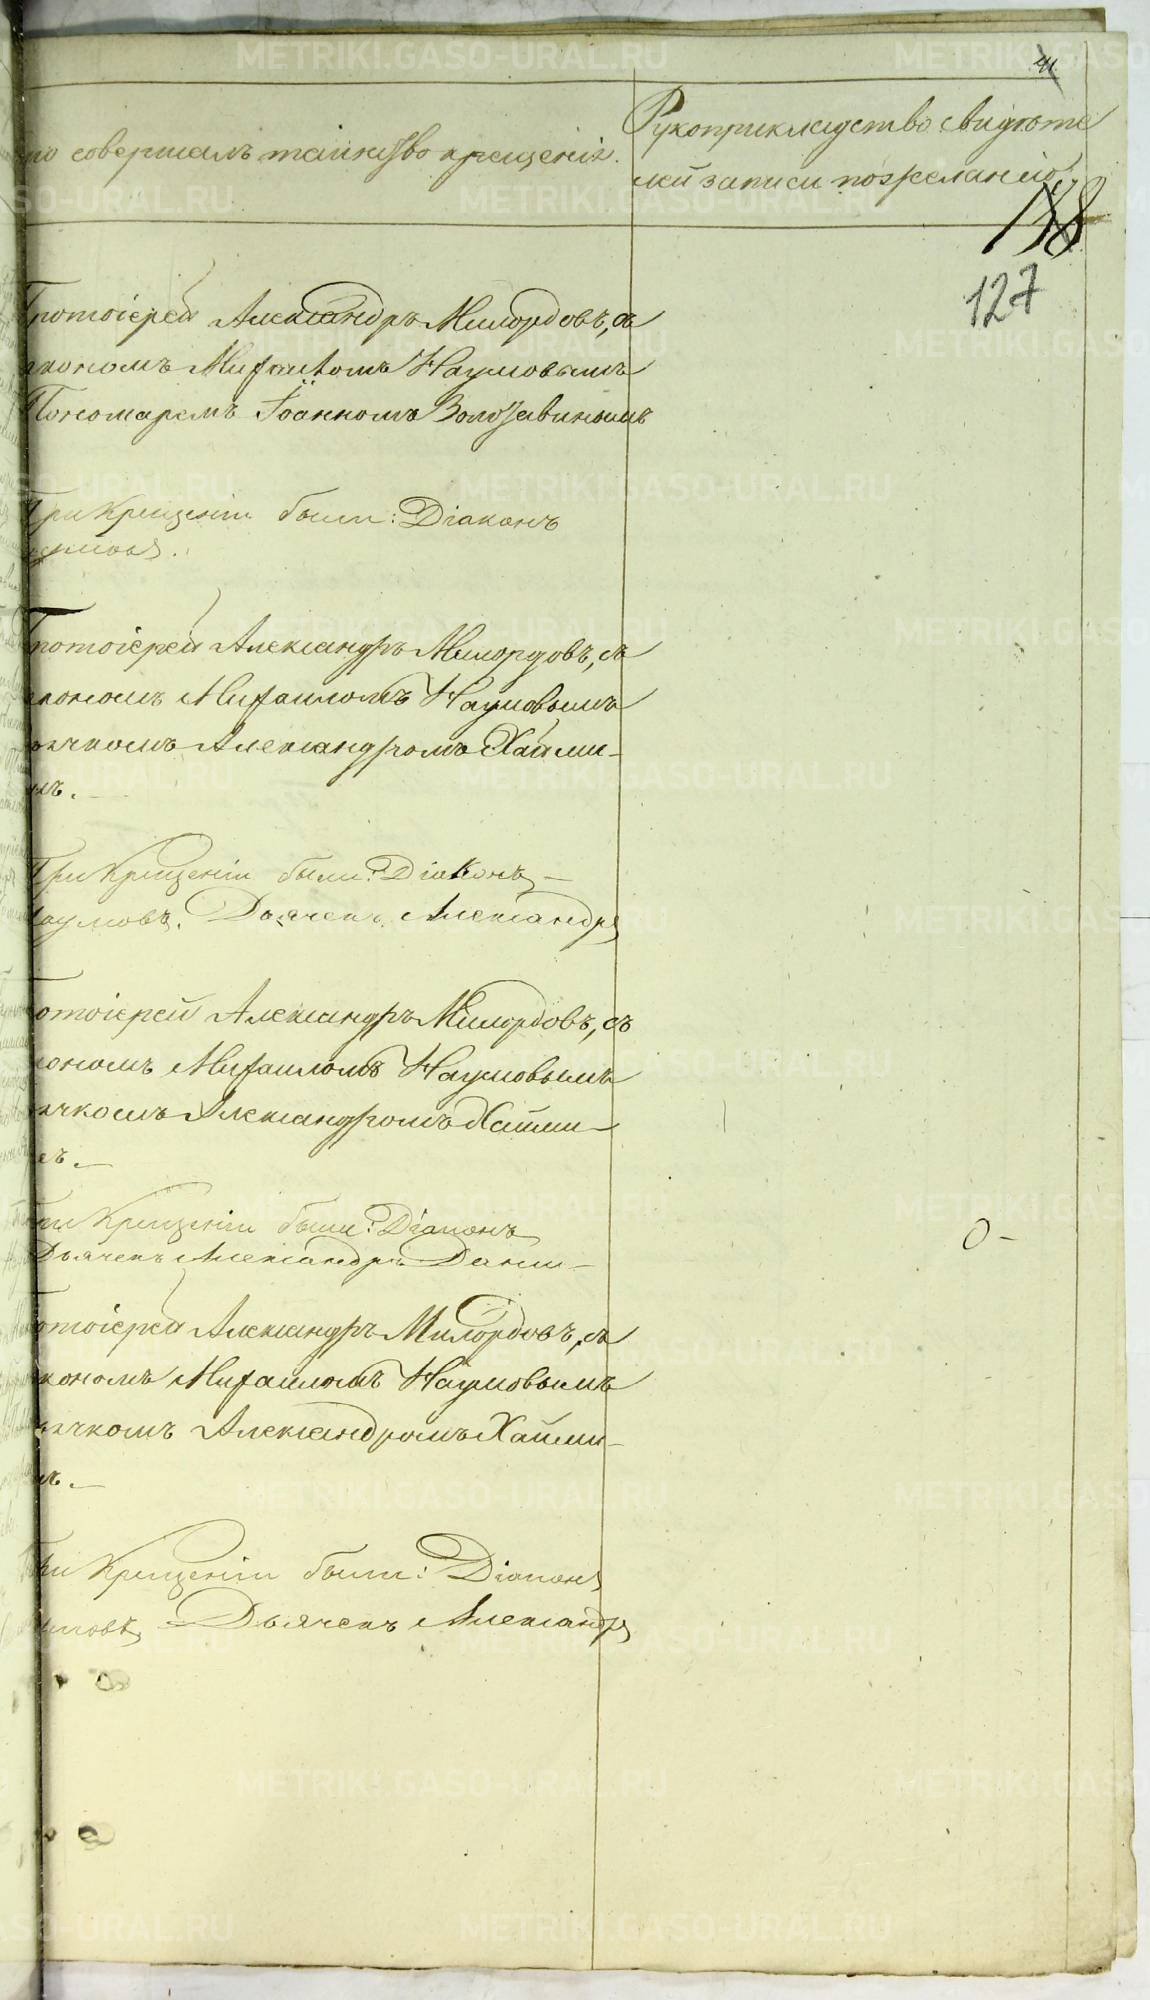 41
то совершалъ таинство крещенія.
Рукоприкладство свидѣте
лей записи по желанію.
138
127
Протоіерей Александръ Милордовъ, съ
іакономъ Михаиломъ Наумовымъ
Пономаремъ Іоанномъ Золотавинымъ
При Крещеніи были: Діаконъ
отоіерей Александръ Милордовъ, съ
кономъ Михаиломъ Наумовымъ
ячкомъ Александромъ Хайми-
мъ.
При Крещеніи были: Діаконъ
аумовъ, Дьячекъ Александръ
отоіерей Александръ Милордовъ, съ
кономъ Михаиломъ Наумовымъ
ячкомъ Александромъ Хайми-
мъ.
При Крещеніи были: Діаконъ
Дьячекъ Александръ
отоіерей Александръ Милордовъ, съ
кономъ Михаиломъ Наумовымъ
ячкомъ Александромъ Хайми-
мъ.
При Крещеніи были: Діаконъ
умовъ, Дьячекъ Александръ
METRIKI.GASO-URAL.RU